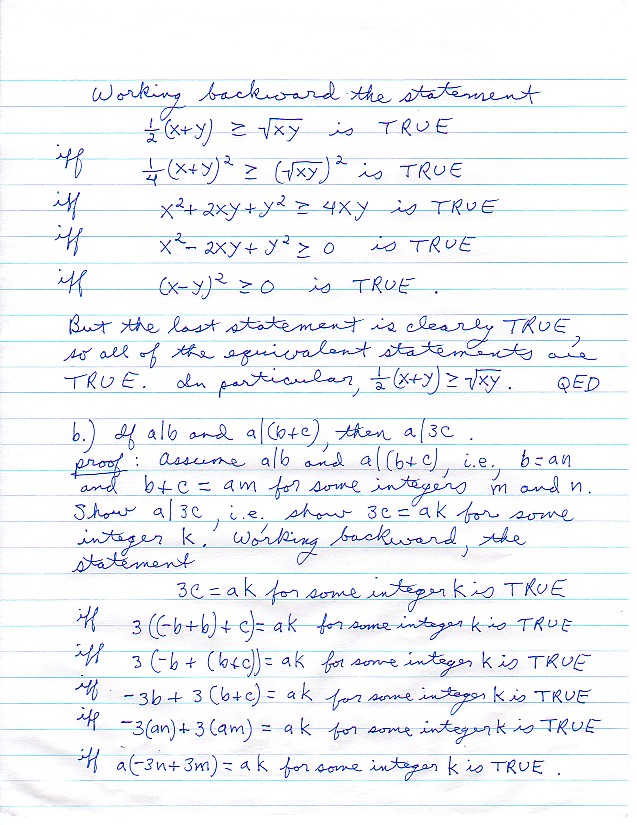 Working backward the statement
½(x+y) ≥ √xy is TRUE
iff ¼(x+y)² ≥ (√xy)² is TRUE
iff x²+2xy+y² ≥ 4xy is TRUE
iff x²-2xy+y² ≥ 0 is TRUE
iff (x-y)² ≥ 0 is TRUE.
But the last statement is clearly TRUE,
so all of the equivalent statements are
TRUE. In particular, ½(x+y) ≥ √xy. QED
b.) If a|b and a|(b+c), then a|3c.
proof: Assume a|b and a|(b+c), i.e., b=an
and b+c = am for some integers m and n.
Show a|3c, i.e. show 3c=ak for some
integer k. Working backward, the
statement
3c=ak for some integer k is TRUE
iff 3((-b+b)+c)=ak for some integer k is TRUE
iff 3(-b+(b+c))=ak for some integer k is TRUE
iff -3b+3(b+c)=ak for some integer k is TRUE
iff -3(an)+3(am) = ak for some integer k is TRUE
iff a(-3n+3m)=ak for some integer k is TRUE.